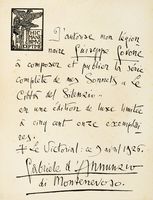 HIC
MANE
BIMUS
OPTIME
J'autorise mon légion
naire Giuseppe
à composer et publier la série
complète de mes Sonnets « Le
Città del Silenzio »
en une édition de luxe limitée
à cinq cent onze exemplai
res.
+ Le Vittorial: ce 3 avril 1926.
Gabriele d'Annunzio
di Montenevoso.